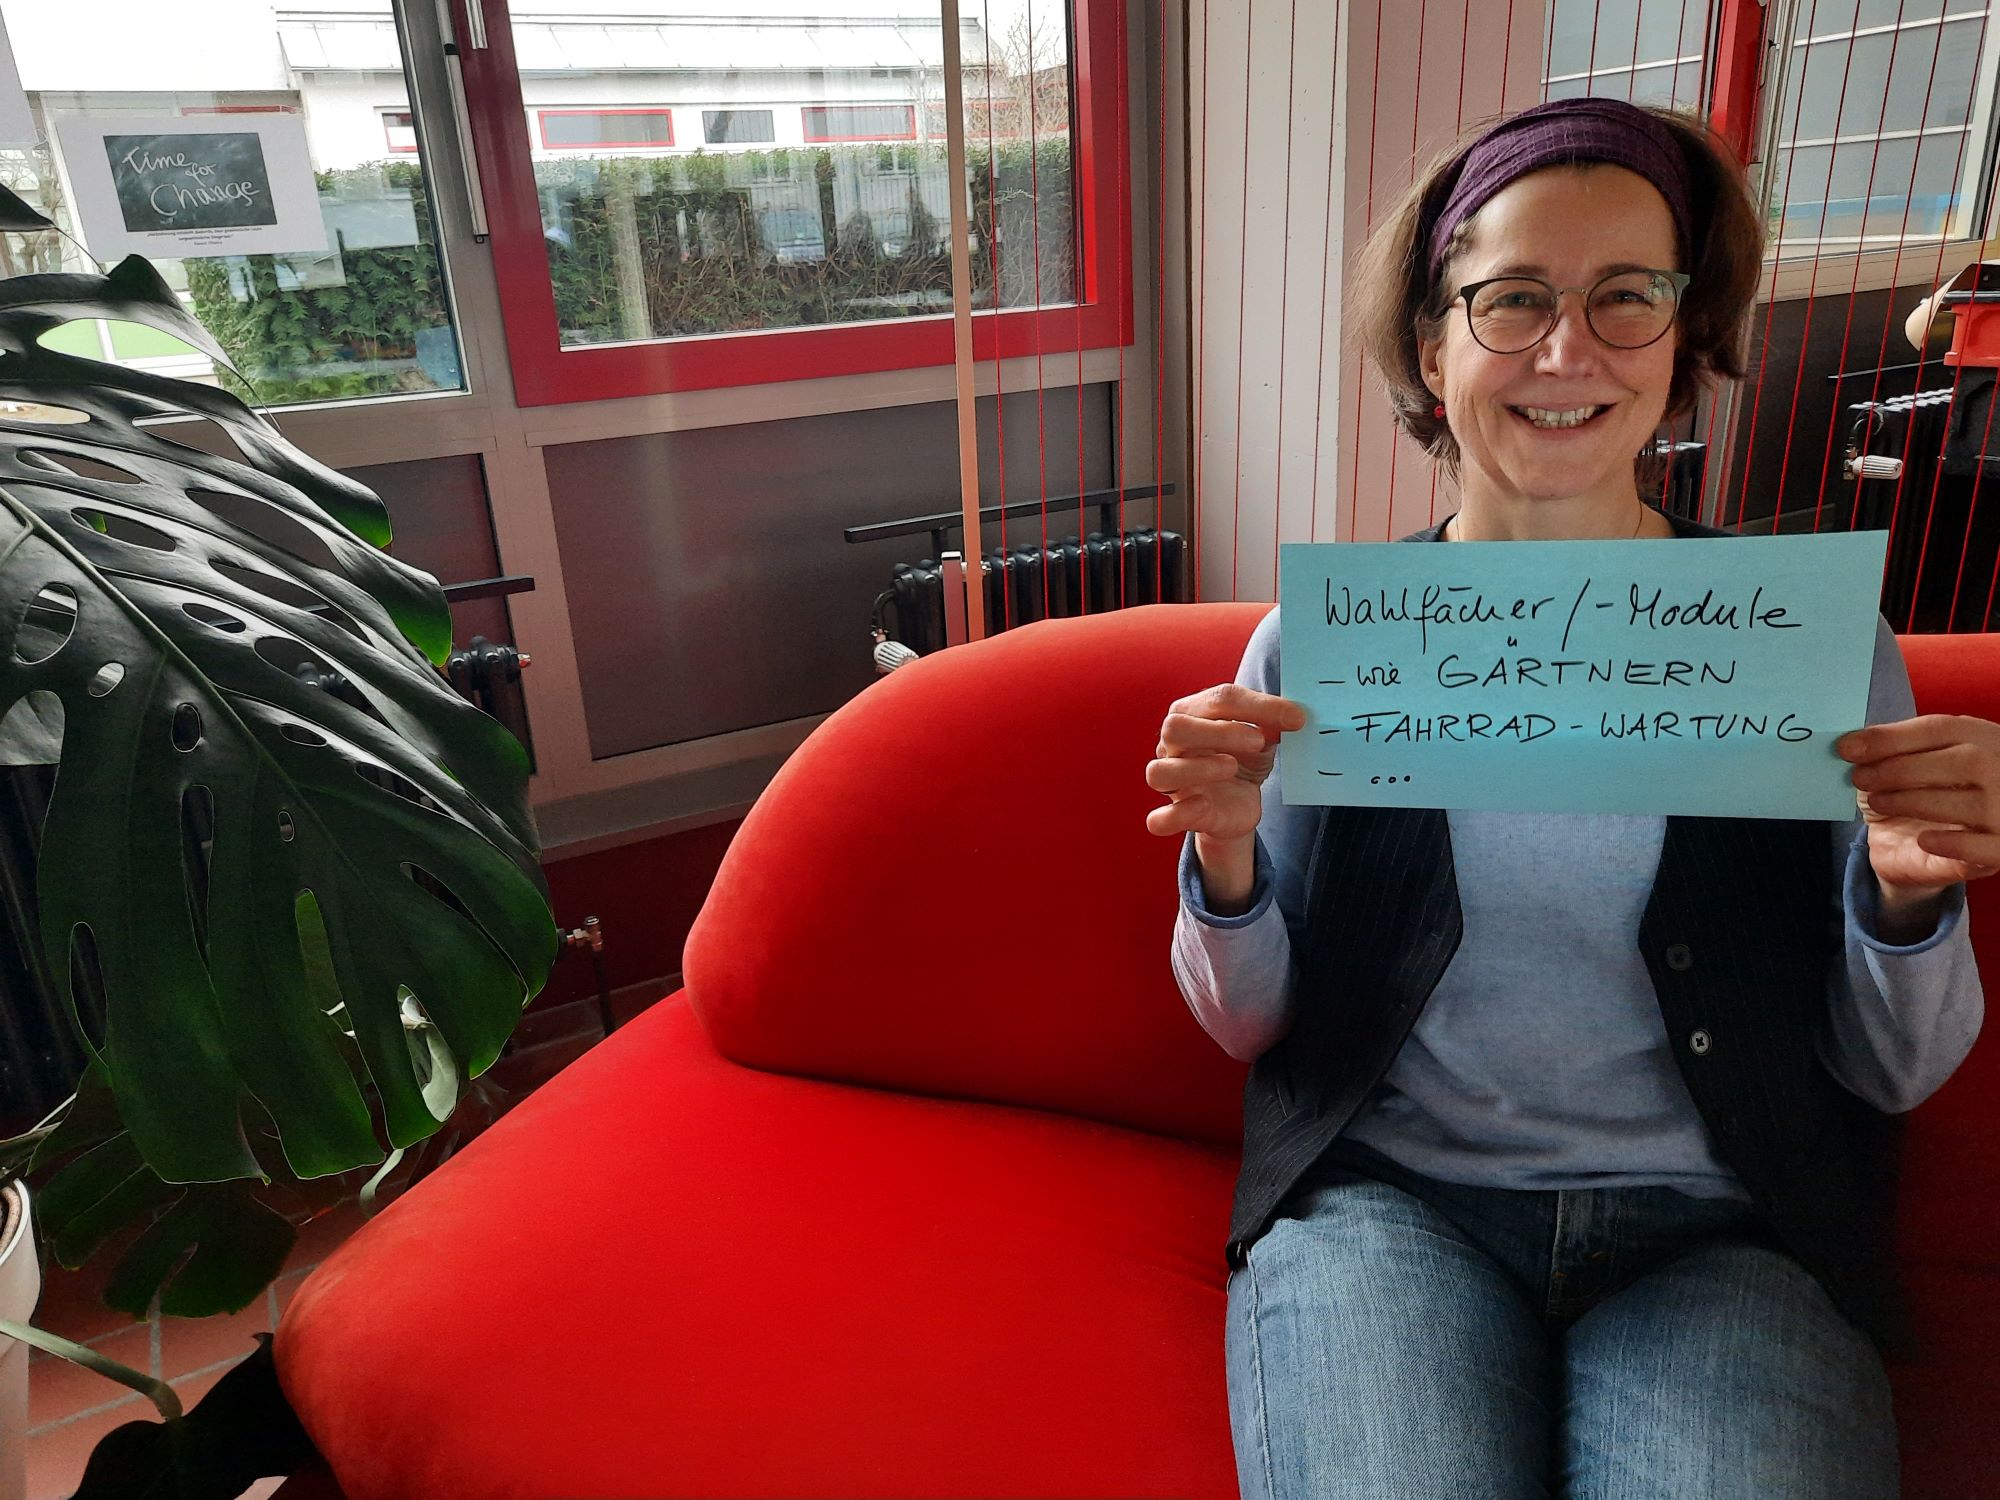 Time
for
Change
Wahlfächer/-Module
- wie GÄRTNERN
- FAHRRAD-WARTUNG
- ...